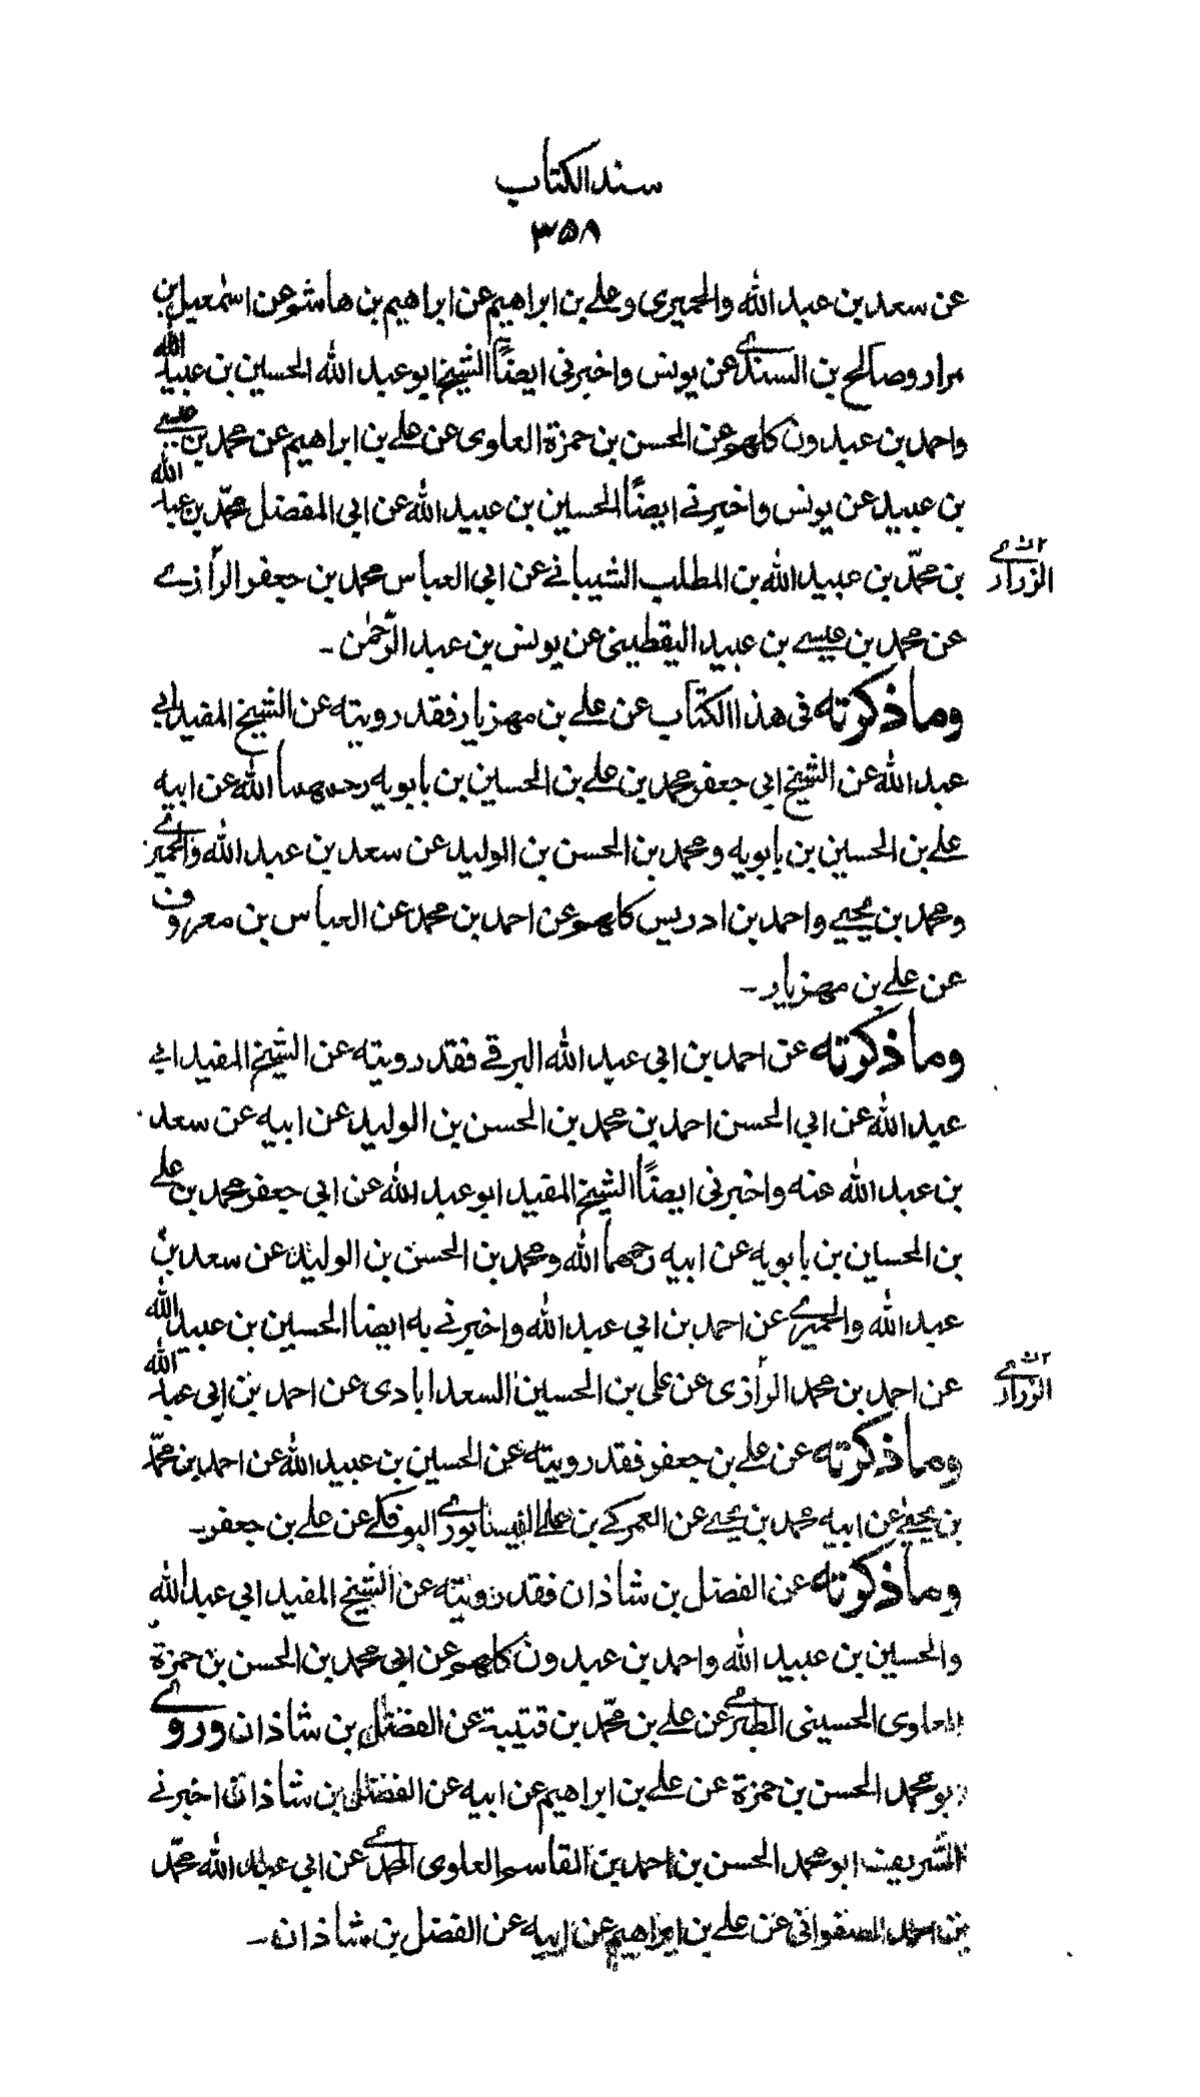 سند الكتاب
٣٥٨
عن سعد بن عبد الله والحميرى وعلے بن ابراهيم عن ابراهيم بن هاشم عن اسمٰعيل بن
مرار وصالح بن السندے عن يونس واخبرنى ايضًا الشيخ ابو عبد الله الحسين بن عبيد الله
واحمد بن عبدون كلهم عن الحسن بن حمزة العلوى عن علے بن ابراهيم عن محمد بن عيسے
بن عبيد عن يونس واخبرنے ايضًا الحسين بن عبيد الله عن ابى المفضل محمّد بن عبد الله
بن محمّد بن عبيد الله بن المطلب الشيبانے عن ابى العباس محمد بن جعفر الرازے
الزرارے
عن محمد بن عيسے بن عبيد اليقطينى عن يونس بن عبد الرّحمٰن -
وما ذكرته فى هذا الكتاب عن علے بن مهزيار فقد رويته عن الشيخ المفيد ابى
عبد الله عن الشيخ ابى جعفر محمد بن علے بن الحسين بن بابويه رحمهما الله عن ابيه
علے بن الحسين بن بابويه ومحمد بن الحسن بن الوليد عن سعد بن عبد الله والحميرے
ومحمد بن يحيے واحمد بن ادريس كلهم عن احمد بن محمد عن العباس بن معروف
عن علے بن مهزيار -
وما ذكرته عن احمد بن ابى عبد الله البرقے فقد رويته عن الشيخ المفيد ابى
عبد الله عن ابى الحسن احمد بن محمد بن الحسن بن الوليد عن ابيه عن سعد
بن عبد الله عنه واخبرنى ايضًا الشيخ المفيد ابو عبد الله عن ابى جعفر محمد بن علے
بن الحسين بن بابويه عن ابيه رحمهما الله ومحمد بن الحسن بن الوليد عن سعد بن
عبد الله والحميرے عن احمد بن ابى عبد الله واخبرنے به ايضا الحسين بن عبيد الله
عن احمد بن محمد الرازى عن على بن الحسين السعدابادى عن احمد بن ابى عبد الله
الزرارے
وما ذكرته عن علے بن جعفر فقد رويته عن الحسين بن عبيد الله عن احمد بن محمّد
بن يحيےٰ عن ابيه محمد بن يحيے عن العمركے بن علے النيسابورے البوفكے عن علے بن جعفر -
وما ذكرته عن الفضل بن شاذان فقد رويته عن الشيخ المفيد ابى عبد الله
والحسين بن عبيد الله واحمد بن عبدون كلهم عن ابى محمد بن الحسن بن حمزة
العلوى الحسينى الطبرے عن علے بن محمّد بن قتيبة عن الفضل بن شاذان وروے
ابو محمد الحسن بن حمزة عن علے بن ابراهيم عن ابيه عن الفضل بن شاذان اخبرنے
الشريف ابو محمد الحسن بن احمد بن القاسم العلوى المحمدے عن ابى عبد الله محمّد
بن احمد الصفوانى عن علے بن ابراهيم عن ابيه عن الفضل بن شاذان -